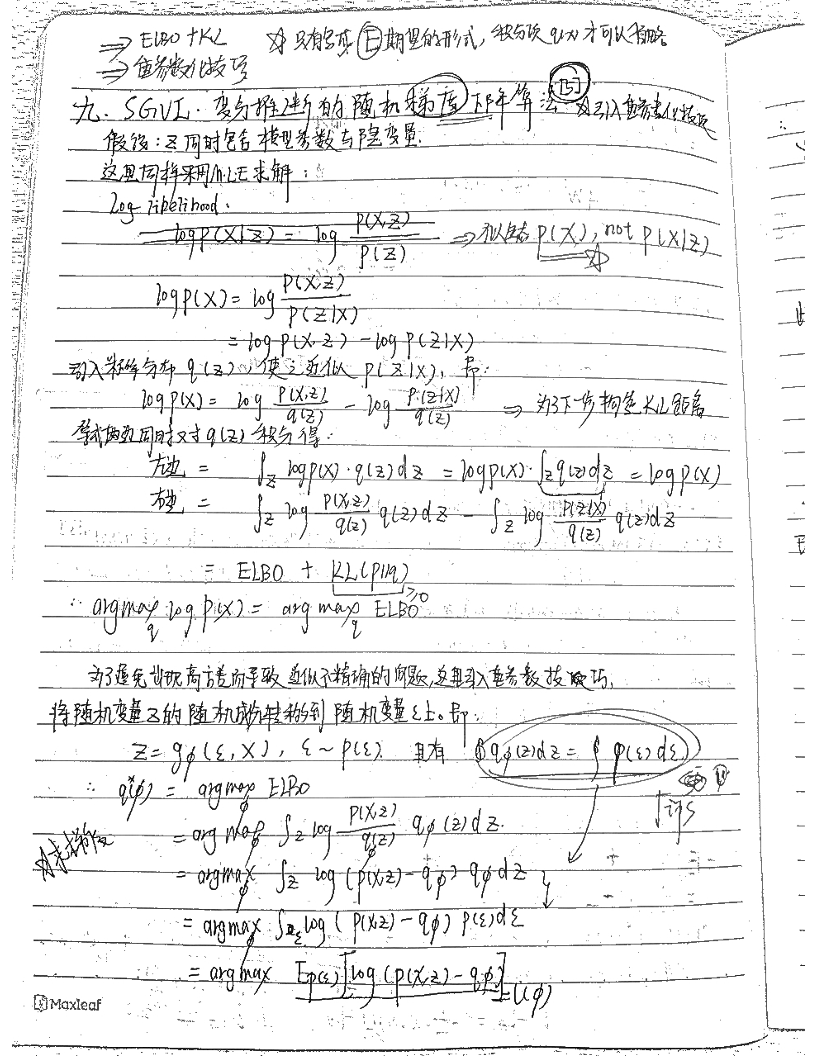 ⇒ ELBO + KL ☆ 只有写成 E 期望的形式, 积分项 q(x) 才可以省略
⇒ 重参数化技巧
九. SGVI. 变分推断的随机梯度下降算法 引入重参数化技巧
假设: Z 同时包含模型参数与隐变量.
这里同样采用MLE求解:
Log-likelihood.
log P(X|Z) = log P(X,Z) / P(Z) ⇒ P(X), not P(X|Z)
log P(X) = log P(X,Z) / P(Z|X)
= log P(X,Z) - log P(Z|X)
引入 分布 q(z), 使之近似 P(Z|X), 即:
log P(X) = log P(X,Z) / q(Z) - log P(Z|X) / q(Z) ⇒ 为了下一步构造 KL 距离
等式两边同时对 q(z) 积分得:
左边 = ∫_Z log P(X)·q(z)dz = log P(X)·∫_Z q(z)dz = log P(X)
右边 = ∫_Z log P(X,Z) / q(Z) q(z)dz - ∫_Z log P(Z|X) / q(Z) q(z)dz
= ELBO + KL(P||q) ≥0
∴ argmax_q log P(X) = argmax_q ELBO
为了避免出现高方差而导致近似不精确的问题, 这里引入重参数技巧,
将随机变量Z的随机成分转移到随机变量ε上。即.
Z = g_ϕ(ε, X), ε ~ P(ε). 具有 ∫q_ϕ(z)dz = ∫ P(ε)dε.
∴ q*(ϕ) = argmax_ϕ ELBO
= argmax_ϕ ∫_Z log P(X,Z) / q_ϕ(Z) q_ϕ(z)dz.
☆ 求梯度
= argmax_ϕ ∫_Z log (P(X,Z) - q_ϕ) q_ϕ dz
= argmax_ϕ ∫_ε log (P(X,Z) - q_ϕ) P(ε)dε
= argmax E_P(ε) [log (P(X,Z) - q_ϕ)] = L(ϕ)
Maxleaf